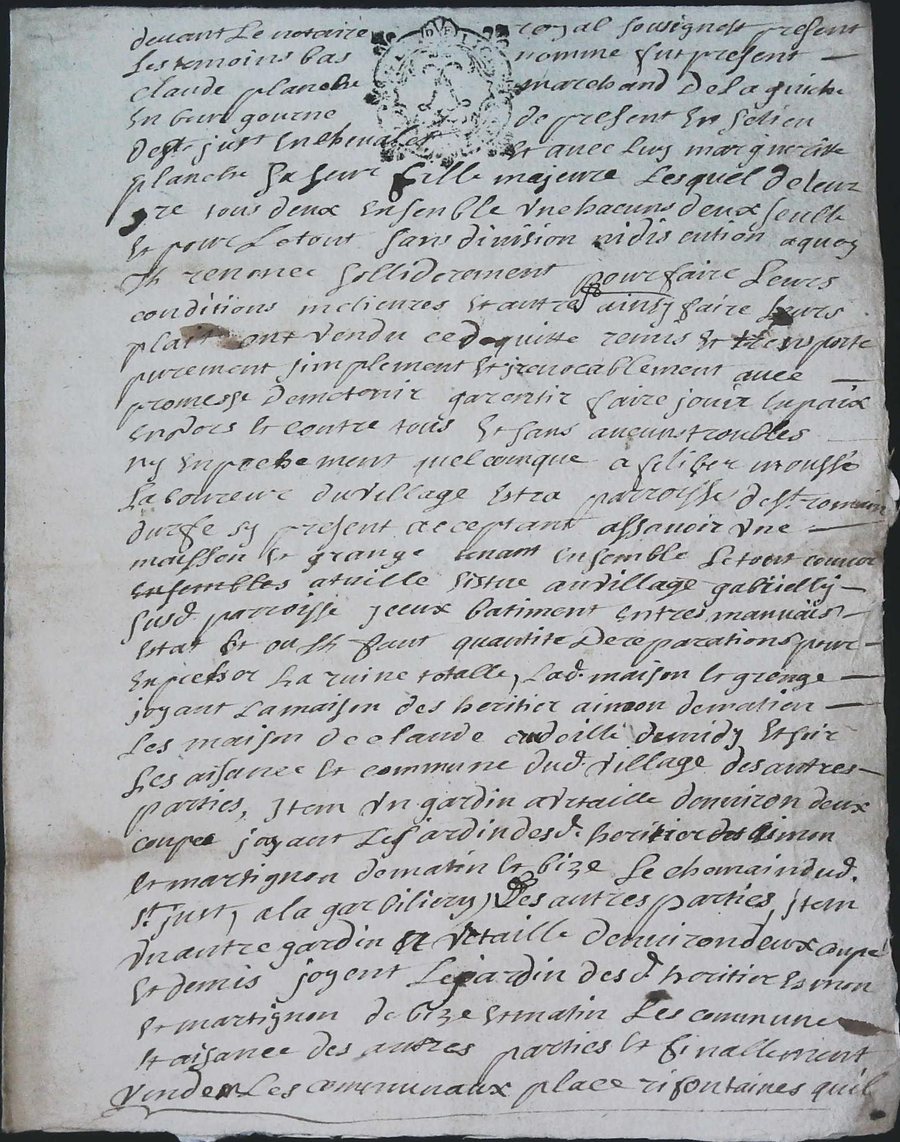 devant Le notaire royal sousignest present
Les temoins bas nomme fut present
claude planche marchand De La guiche
En bourgourne de present En Se lieu
De st just En chevalet Et avec Luy margueritte
planche Sa seur fille majeure Lesquel de leur
gre tous deux Ensemble Vnchacuns deux seulle
Et pour Le tout sans division ni discution a quoy
Ils renonce solliderement pour faire Leurs
conditions melieures Et autre ainsy faire Leurs
plait ont vendu cede quitte remis Et transporte
purement simplement Et jrevocablement avec
promesse De metenir garentir faire jouir En paix
Envers Et contre tous Et sans aucuns troubles
ny Enpechement quelconque a feliber mousse
Laboureur du village Estra parroisse de st romain
durfe sy present acceptant assavoir Vne
maisson Et grange tenant Ensemble Le tout couver
Ensembles a tuille sistue au village gabrielly
susd. parroisse jceux batiment En tres mauvais
Estat Et ou Il faut quantite De reparations pour
Enpecher La ruine totalle, Lad. maison Et grange
joyant La maison des heritier aimon de matien
Les maison De claude de midy Et soir
Les aisance Et commune dud. village des autres
parties, Jtem Vn gardin a Vetaille denviron deux
coupe joyant Les jardin des d. heritier Esmon
Et martignon de matin Et bize Le chemain dud.
st. just, a la garbiliery, Des autres parties, jtem
Vn autre gardin Et Vetaille Denviron deux coupe
Et demis joyent Le jardin des d. heritier Esmon
Et martignon de bize Et matin Les commune
Et aisance des autres parties Et finallement
Vendent Les communaux place ri fontaines quil